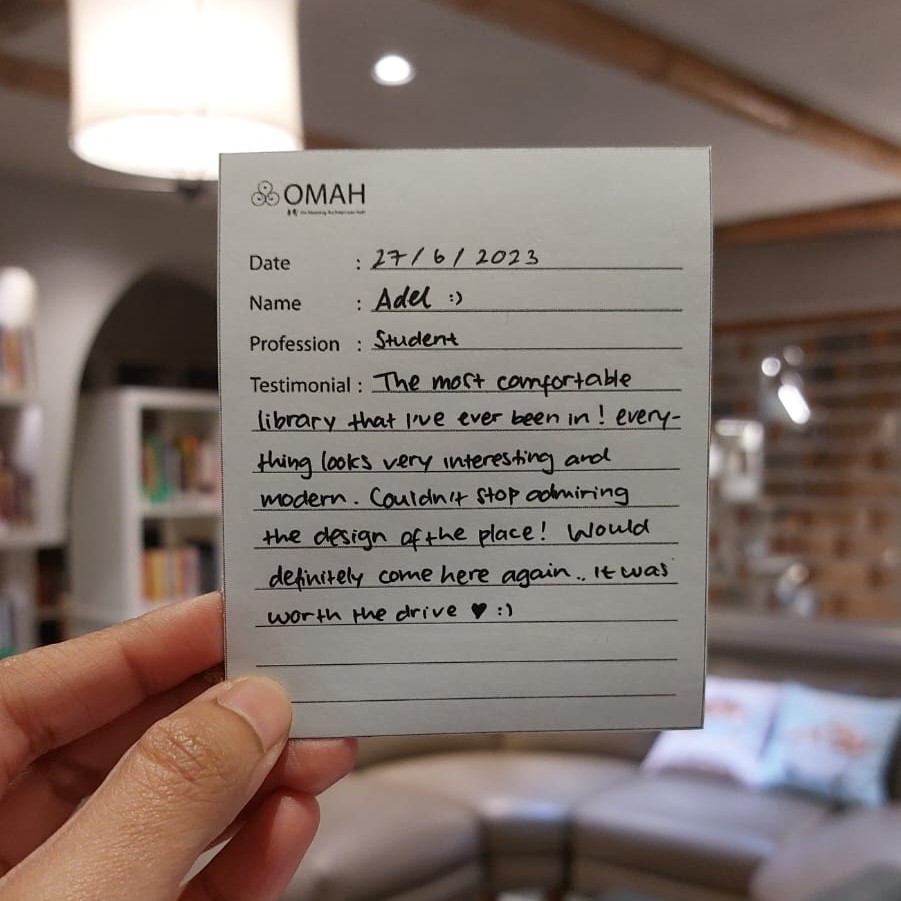 OMAH
Date : 27/6/2023
Name : Adel :)
Profession : Student
Testimonial : The most comfortable
library that I've ever been in! every-
thing looks very interesting and
modern. Couldn't stop admiring
the design of the place! Would
definitely come here again.. It was
worth the drive ♥ :)